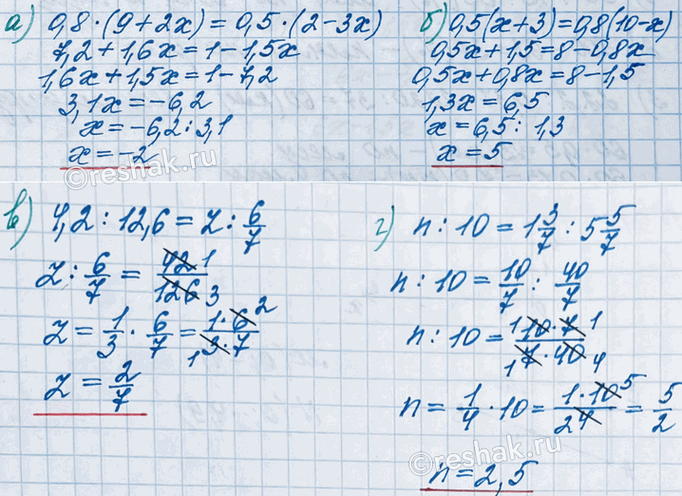 а) 0,8 · (9 + 2x) = 0,5 · (2 - 3x)
7,2 + 1,6x = 1 - 1,5x
1,6x + 1,5x = 1 - 7,2
3,1x = -6,2
x = -6,2 : 3,1
x = -2
б) 0,5(x + 3) = 0,8(10 - x)
0,5x + 1,5 = 8 - 0,8x
0,5x + 0,8x = 8 - 1,5
1,3x = 6,5
x = 6,5 : 1,3
x = 5
в) 4,2 : 12,6 = z : 6/7
z : 6/7 = 42 1 / 126 3
z = 1/3 · 6/7 = 1 · 6 2 / 1 3 · 7
z = 2/7
г) n : 10 = 1 3/7 : 5 5/7
n : 10 = 10/7 : 40/7
n : 10 = 1 10 · 7 1 / 1 7 · 40 4
n = 1/4 · 10 = 1 · 10 5 / 2 4 = 5/2
n = 2,5
©reshak.ru